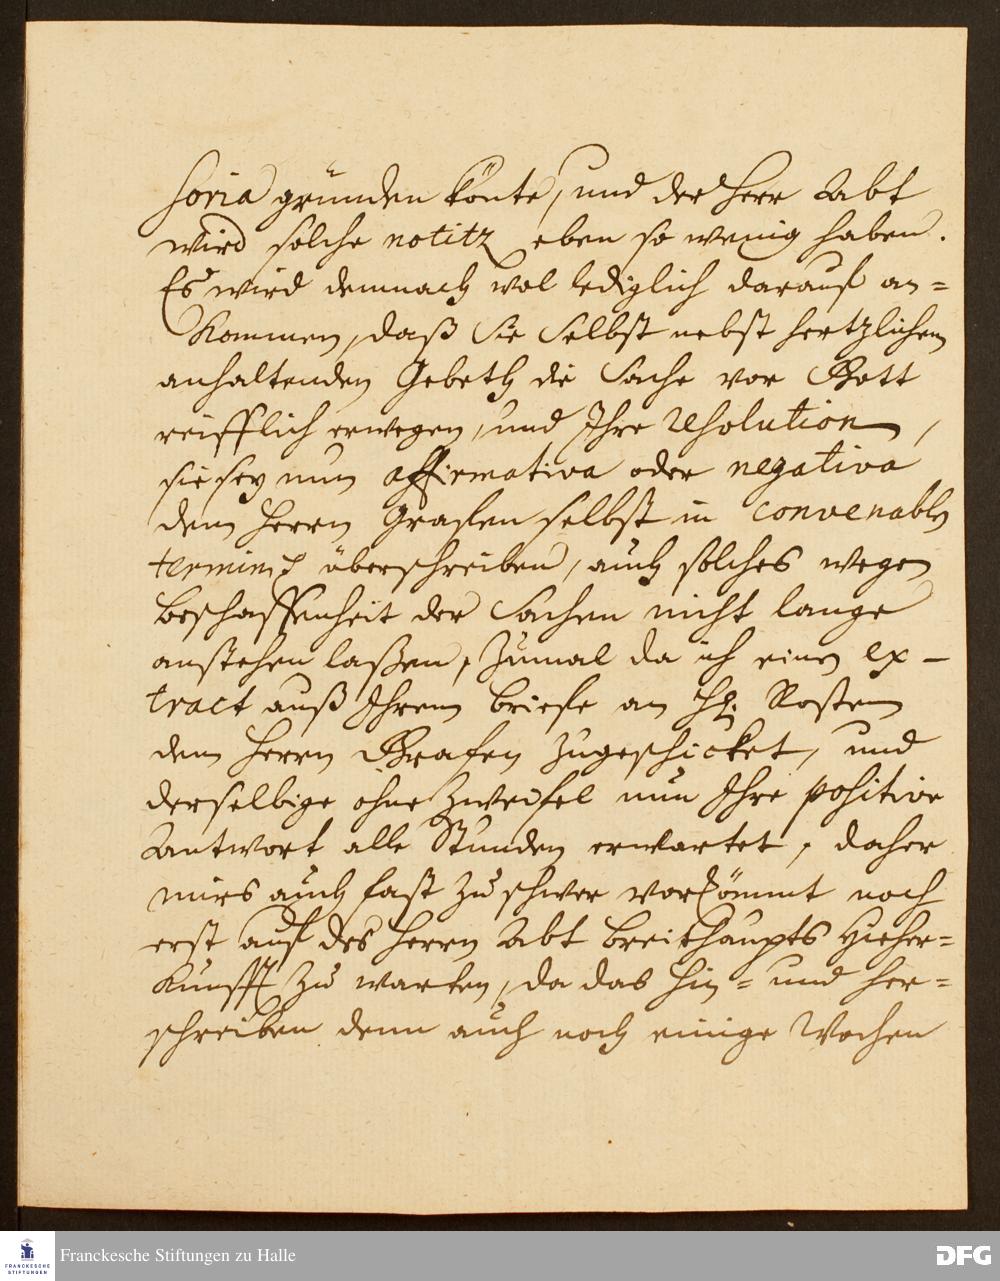 soria gründen könte, und der Herr Abt
wird solche notitz eben so wenig haben.
Es wird demnach wol lediglich darauf an-
kommen, daß Sie selbst nebst hertzlichem
anhaltenden Gebeth die Sache vor Gott
reifflich erwegen, und Ihre resolution,
sie sey nun affirmativa oder negativa
dem Herrn Graffen selbst in convenablen
terminis überschreiben, auch solches wegen
beschaffenheit der Sachen nicht lange
anstehen laßen, zumal da ich einen ex-
tract auß Ihrem briefe an Hl. Rosten
dem Herrn Grafen zugeschicket, und
derselbige ohne Zweifel nun Ihre positive
Antwort alle Stunden erwartet, daher
mirs auch fast zu schwer vorkömmt noch
erst auf des Herrn Abt breithaupts Hieher-
kunfft zu warten, da das hin- und her-
schreiben denn auch noch einige Wochen
FRANCKESCHE
STIFTUNGEN
Franckesche Stiftungen zu Halle
DFG